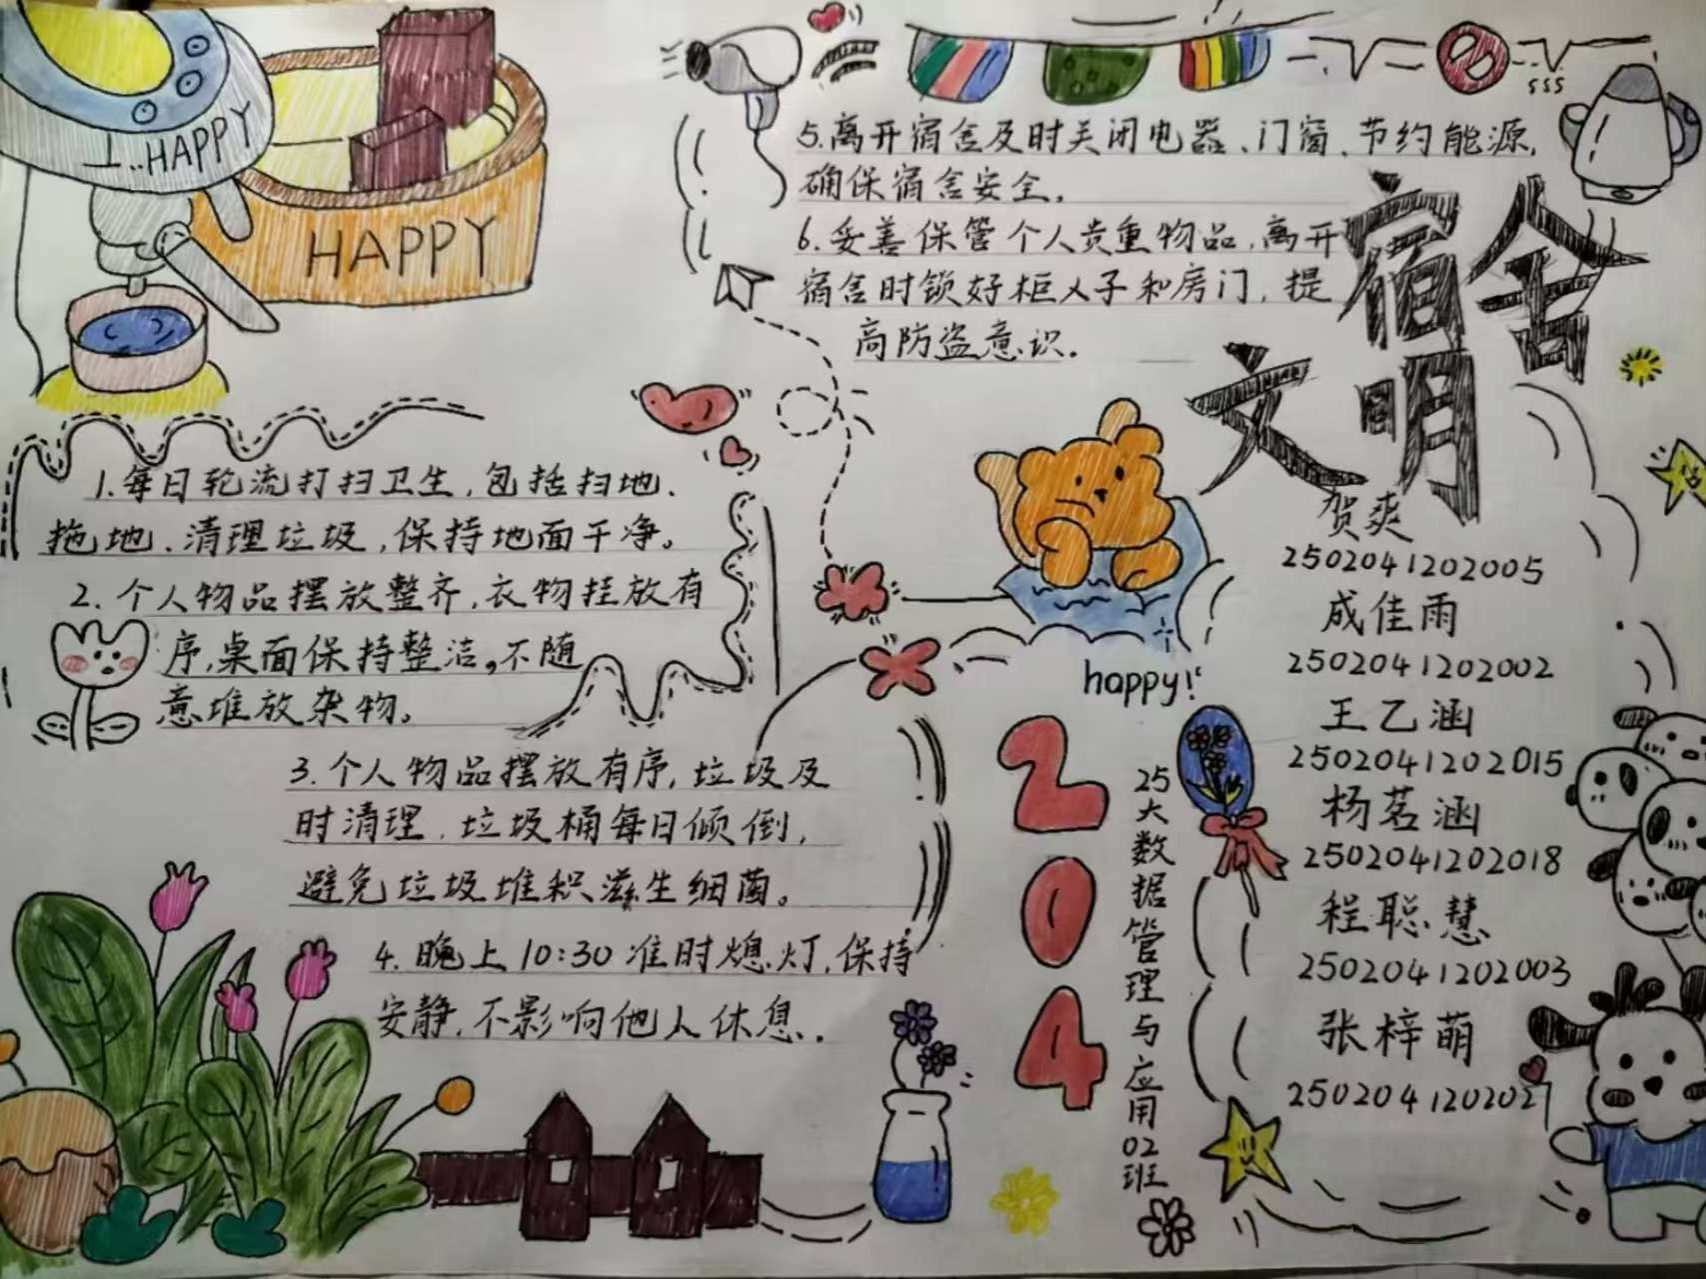 I..HAPPY
HAPPY
1.每日轮流打扫卫生,包括扫地、
拖地、清理垃圾,保持地面干净。
2.个人物品摆放整齐,衣物挂放有
序,桌面保持整洁,不随
意堆放杂物。
3.个人物品摆放有序,垃圾及
时清理,垃圾桶每日倾倒,
避免垃圾堆积滋生细菌。
4.晚上10:30准时熄灯,保持
安静,不影响他人休息.
sss
5.离开宿舍及时关闭电器、门窗、节约能源,
确保宿舍安全。
6.妥善保管个人贵重物品,离开
宿舍时锁好柜子和房门,提
高防盗意识.
宿舍
文明
happy!
204
25大数据管理与应用02班
贺爽
2502041202005
成佳雨
2502041202002
王乙涵
2502041202015
杨茗涵
2502041202018
程聪慧
2502041202003
张梓萌
2502041202021